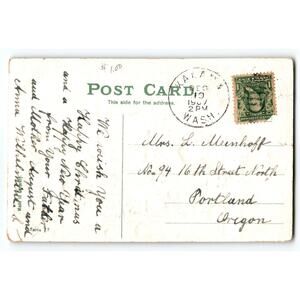 $1.00
POST CARD
This side for the address.
KALAMA
DEC
19
1907
2 PM
WASH.
Mrs. L. Meenhoff
No. 94 16th Street North
Portland
Oregon
We wish you a
Happy Christmas
and a Happy New Year
from your Father
and Mother August and
Anna Wilhelmina